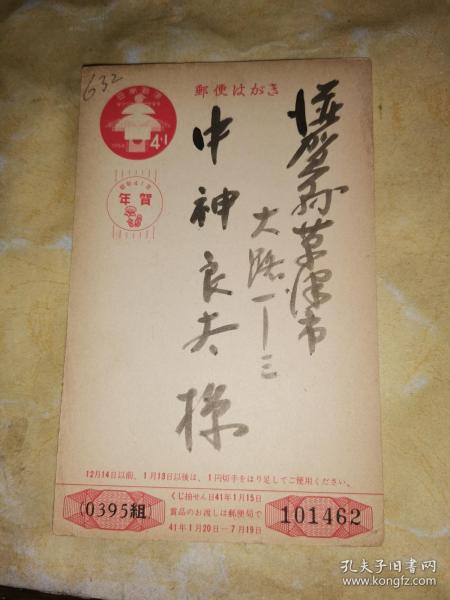 632
郵便はがき
4+1
1966
昭和41年
年賀
滋賀県草津市
大路一丨三
中神良夫様
12月14日以前、1月16日以後は、1円切手をはり足してご使用ください。
くじ抽せん日41年1月15日
賞品のお渡しは郵便局で
41年1月20日―7月19日
(0395組)
101462
孔夫子旧书网
www.kongfz.com